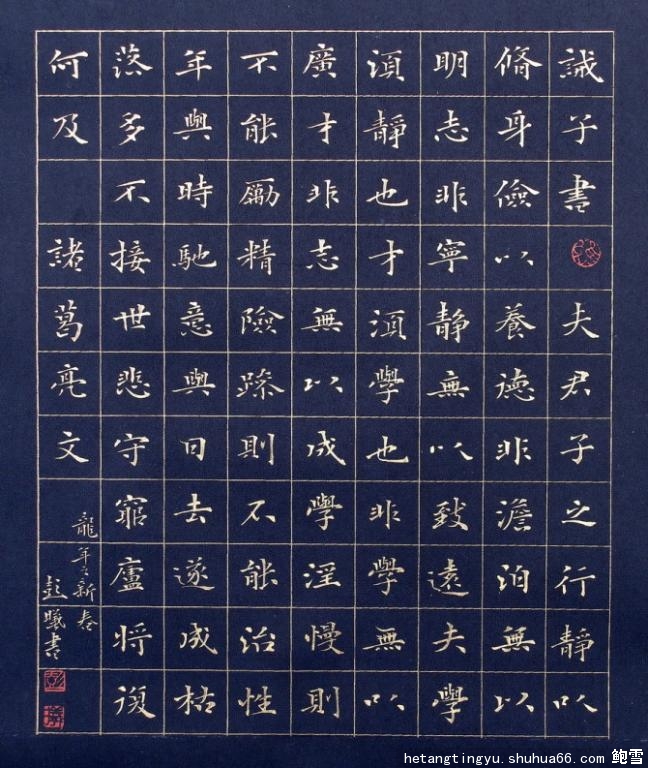 誡子書夫君子之行靜以
脩身儉以養德非澹泊無以
明志非寧靜無以致遠夫學
須靜也才須學也非學無以
廣才非志無以成學淫慢則
不能勵精險躁則不能治性
年與時馳意與日去遂成枯
落多不接世悲守窮廬將復
何及 諸葛亮文
龍年新春
彭曦書
hetangtingyu.shuhua66.com 鲍雪